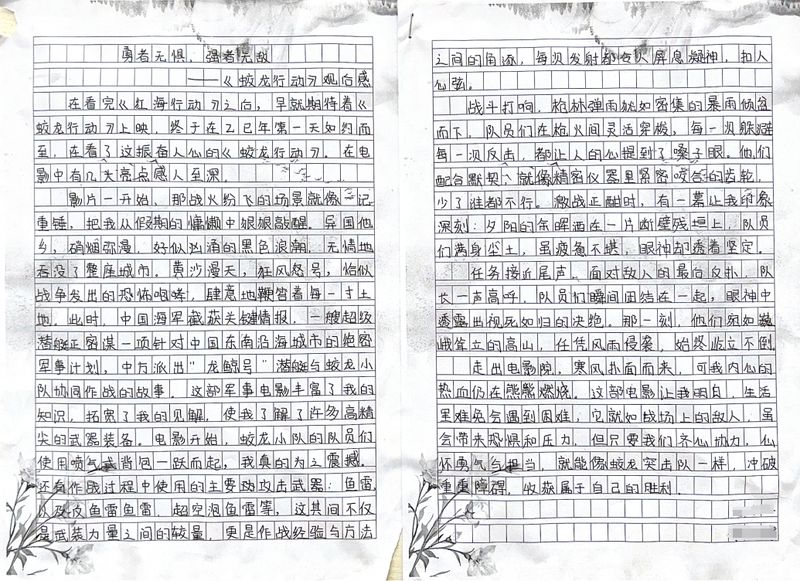 勇者无惧，强者无敌
——《蛟龙行动》观后感
在看完《红海行动》之后，早就期待着《
蛟龙行动》上映，终于在乙巳年第一天如约而
至，在看了这振奋人心的《蛟龙行动》。在电
影中有几大亮点感人至深。
影片一开始，那战火纷飞的场景就像一记
重锤，把我从假期的慵懒中狠狠敲醒。异国他
乡，硝烟弥漫，好似汹涌的黑色浪潮，无情地
吞没了整座城市。黄沙漫天，狂风怒号，恰似
战争发出的恐怖咆哮，肆意地鞭笞着每一寸土
地。此时，中国海军截获关键情报，一艘超级
潜艇正密谋一项针对中国东南沿海城市的绝密
军事计划，中方派出"龙鲸号"潜艇与蛟龙小
队协同作战的故事。这部军事电影丰富了我的
知识，拓宽了我的见解，使我了解了许多高精
尖的武器装备。电影开始，蛟龙小队的队员们
使用喷气式背包一跃而起，我真的为之震撼。
还有作战过程中使用的主要攻击武器：鱼雷，
从政攻鱼雷鱼雷，超空泡鱼雷等，这其间不仅
是武装力量之间的较量，更是作战经验与方法
之间的角逐，每次发射都令人屏息凝神，扣人
心弦。
战斗打响，枪林弹雨犹如密集的暴雨倾盆
而下，队员们在枪火间灵活穿梭，每一次躲避
每一次反击，都让人的心提到了嗓子眼。他们
配合默契，就像精密仪器里紧密咬合的齿轮，
少了谁都不行。激战正酣时，有一幕让我印象
深刻：夕阳的余晖洒在一片断壁残垣上，队员
们满身尘土，虽疲惫不堪，眼神却透着坚定。
任务接近尾声，面对敌人的最后反扑，队
长一声高呼，队员们瞬间团结在一起，眼神中
透露出视死如归的决绝。那一刻，他们宛如巍
峨耸立的高山，任凭风雨侵袭，始终屹立不倒。
走出电影院，寒风扑面而来，可我内心的
热血仍在熊熊燃烧。这部电影让我明白，生活
里难免会遇到困难，它就如战场上的敌人，虽
会带来恐惧和压力，但只要我们齐心协力，心
怀勇气与担当，就能像蛟龙突击队一样，冲破
重重障碍，收获属于自己的胜利。